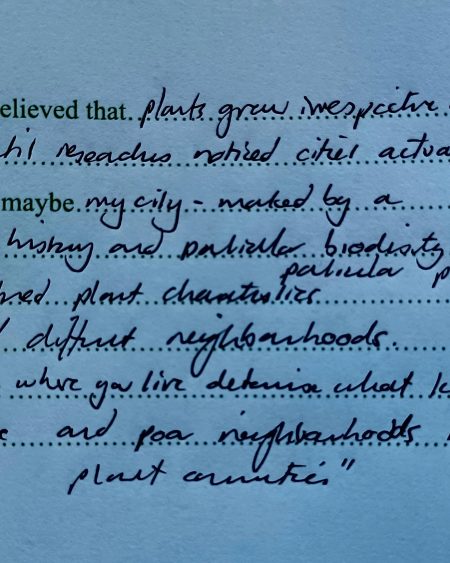 elieved that plants grew irrespective
til researches noticed cities actua
maybe my city - marked by a
history and particular biodisity
particular p
ned plant characteristics
diffrent neighbourhoods.
where you live determine what k
and poor neighbourhoods
plant communities"